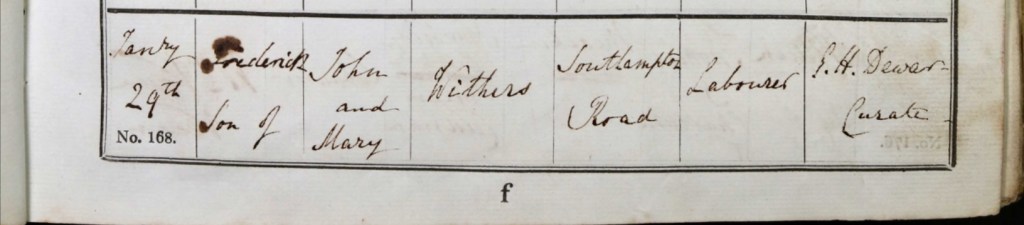 Janry
29th
No. 168.
Frederick
Son of
John
and
Mary
Withers
Southampton
Road
Labourer
E. H. Dewar
Curate
f